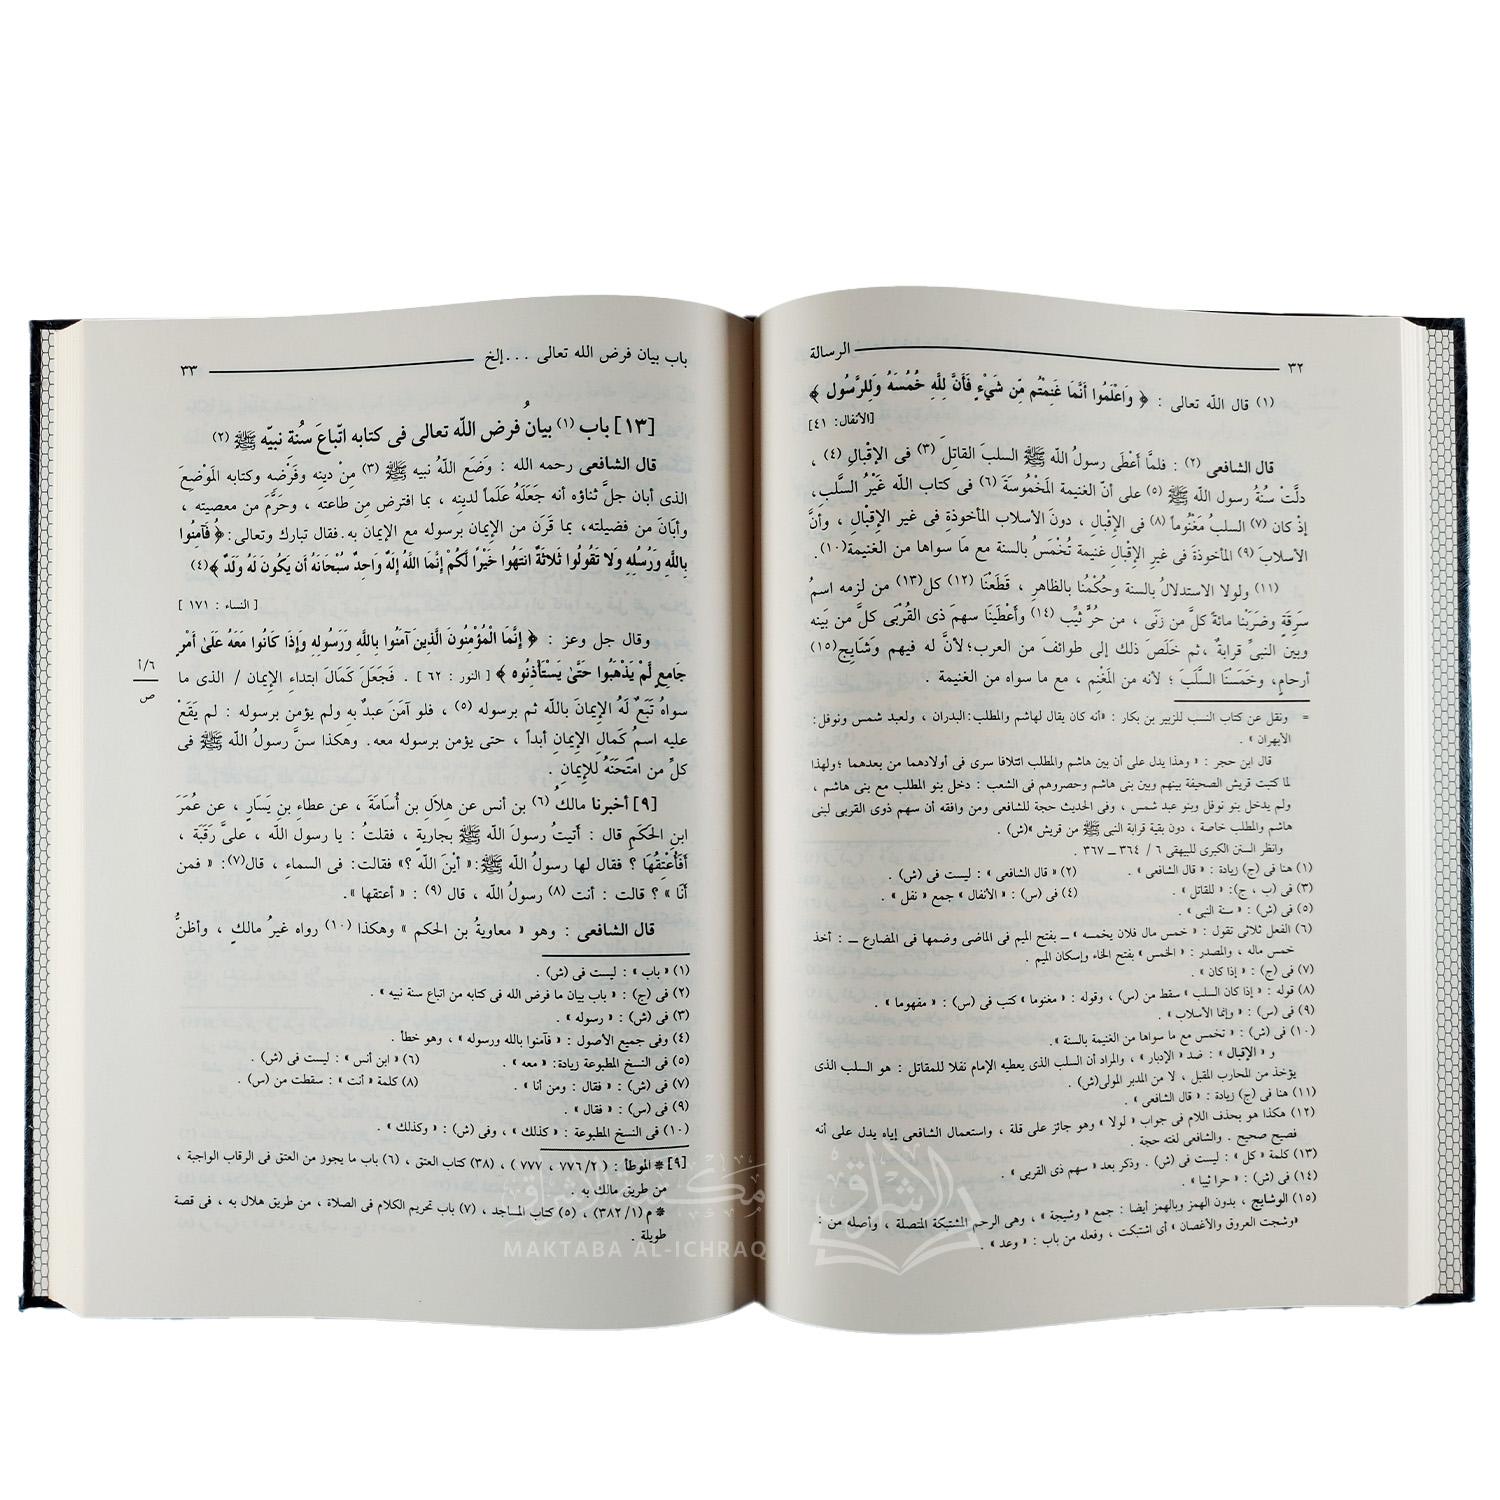 ٣٢ الرسالة
(١) قال اللّه تعالى : ﴿ وَاعْلَمُوا أَنَّمَا غَنِمْتُم مِّن شَيْءٍ فَأَنَّ لِلَّهِ خُمُسَهُ وَلِلرَّسُولِ ﴾
[الأنفال: ٤١]
قال الشافعى (٢) : فلمَّا أَعْطَى رسولُ اللّه ﷺ السلبَ القاتِلَ (٣) فى الإقْبالِ (٤) ،
دلَّتْ سُنةُ رسول اللّه ﷺ (٥) على أنّ الغنيمة المَخْمُوسَةَ (٦) فى كتاب اللّه غَيْرُ السَّلَبِ،
إذْ كان (٧) السلبُ مَغْنُوماً (٨) فى الإقْبالِ ، دونَ الأسلاب المأخوذةِ فى غير الإقْبالِ ، وأنَّ
الأسلابَ (٩) المأخوذةَ فى غيرِ الإقْبالِ غنيمة تُخْمَسُ بالسنة مع مَا سواها من الغنيمة(١٠).
(١١) ولولا الاستدلالُ بالسنة وحُكْمُنا بالظاهرِ ، قَطَعْنَا (١٢) كل(١٣) من لزمه اسمُ
سَرِقَةٍ وضَرَبْنا مائةً كلَّ من زَنَى ، من حُرٍّ ثيِّبٍ (١٤) وأَعْطَينَا سهمَ ذى القُرْبَى كلَّ من بَينه
وبين النبىِّ قرابةٌ ،ثم خَلَصَ ذلك إلى طوائفَ من العرب؛لأنَّ له فيهم وَشَايِجَ(١٥)
أرحامٍ، وخَمَسْنَا السَّلَبَ ؛ لأنه من المَغْنِم ، مع ما سواه من الغنيمة .
= ونقل عن كتاب النسب للزبير بن بكار : «أنه كان يقال لهاشم والمطلب:البدران ، ولعبد شمس ونوفل:
الأبهران » .
قال ابن حجر : « وهذا يدل على أن بين هاشم والمطلب ائتلافا سرى فى أولادهما من بعدهما ؛ولهذا
لما كتبت قريش الصحيفة بينهم وبين بنى هاشم وحصروهم فى الشعب : دخل بنو المطلب مع بنى هاشم ،
ولم يدخل بنو نوفل وبنو عبد شمس ، وفى الحديث حجة للشافعى ومن وافقه أن سهم ذوى القربى لبنى
هاشم والمطلب خاصة ، دون بقية قرابة النبى ﷺ من قريش »(ش) .
وانظر السنن الكبرى للبيهقى ٦ / ٣٦٤ ــ ٣٦٧ .
(١) هنا فى (ج) زيادة : « قال الشافعى » . (٢) « قال الشافعى » : ليست فى (ش) .
(٣) فى (ب ، ج): « للقاتل » . (٤) فى (س) : « الأنفال » جمع « نفل » .
(٥) فى (ش) : « سنة النبى » .
(٦) الفعل ثلاثى تقول : « خمس مال فلان يخمسه » ــ بفتح الميم فى الماضى وضمها فى المضارع ــ : أخذ
خمس ماله ، والمصدر : « الخمس » بفتح الخاء وإسكان الميم .
(٧) فى (ج) : « إذا كان » .
(٨) قوله : « إذا كان السلب » سقط من (س) ، وقوله : « مغنوما » كتب فى (س) : « مفهوما » .
(٩) فى (س) : « وإنما الأسلاب » .
(١٠) فى (ش) : « تخمس مع ما سواها من الغنيمة بالسنة » .
و « الإقبال » : ضد « الإدبار » ، والمراد أن السلب الذى يعطيه الإمام نفلا للمقاتل : هو السلب الذى
يؤخذ من المحارب المقبل ، لا من المدبر المولى(ش) .
(١١) هنا فى (ج) زيادة : « قال الشافعى » .
(١٢) هكذا هو بحذف اللام فى جواب « لولا » وهو جائز على قلة ، واستعمال الشافعى إياه يدل على أنه
فصيح صحيح . والشافعى لغته حجة .
(١٣) كلمة « كل » : ليست فى (ش) . وذكر بعد « سهم ذى القربى » .
(١٤) فى (ش) : « حرا ثيبا » .
(١٥) الوشايج ، بدون الهمز وبالهمز أيضا : جمع « وشيجة » ، وهى الرحم المشتبكة المتصلة ، وأصله من :
«وشجت العروق والأغصان » أى اشتبكت ، وفعله من باب : « وعد » .
باب بيان فرض الله تعالى ... إلخ ٣٣
[١٣] باب (١) بيانُ فرض اللّه تعالى فى كتابه اتّباعَ سُنةِ نبيّه ﷺ (٢)
قال الشافعى رحمه الله : وَضَع اللّهُ نبيه ﷺ (٣) مِنْ دينِه وفَرْضِه وكتابه المَوْضعَ
الذى أبان جلَّ ثناؤه أنه جَعَلَهُ عَلَماً لدينِه ، بما افترض مِن طاعته ، وحَرَّمَ من معصيته ،
وأبَانَ من فضيلته، بما قَرَن من الإيمان برسوله مع الإيمان به.فقال تبارك وتعالى:﴿ فَآمِنُوا
بِاللَّهِ وَرُسُلِهِ وَلا تَقُولُوا ثَلاثَةٌ انتَهُوا خَيْرًا لَّكُمْ إِنَّمَا اللَّهُ إِلَهٌ وَاحِدٌ سُبْحَانَهُ أَن يَكُونَ لَهُ وَلَدٌ ﴾(٤)
[ النساء : ١٧١ ]
وقال جل وعز : ﴿ إِنَّمَا الْمُؤْمِنُونَ الَّذِينَ آمَنُوا بِاللَّهِ وَرَسُولِهِ وَإِذَا كَانُوا مَعَهُ عَلَىٰ أَمْرٍ
جَامِعٍ لَّمْ يَذْهَبُوا حَتَّىٰ يَسْتَأْذِنُوه ﴾ [ النور : ٦٢ ] . فَجَعَلَ كَمَالَ ابتداءِ الإيمان / الذى ما
٦/أ
ص
سواهُ تَبَعٌ لَهُ الإيمانَ باللّه ثم برسوله (٥) ، فلو آمَنَ عبدٌ بهِ ولم يؤمن برسوله : لم يَقَعْ
عليه اسمُ كَمالِ الإيمانِ أبداً ، حتى يؤمن برسوله معه. وهكذا سنَّ رسولُ اللّه ﷺ فى
كلِّ من امْتَحَنَهُ للإيمانِ .
[٩] أخبرنا مالكُ (٦) بن أنس عن هِلاَلِ بن أُسَامَةَ ، عن عطاءِ بنِ يَسَارٍ، عن عُمَرَ
ابنِ الحَكَمِ قال : أتيتُ رسولَ اللّه ﷺ بجاريةٍ، فقلتُ : يا رسول اللّه ، علىَّ رَقَبَة ،
أفَأُعتِقُهَا ؟ فقال لها رسولُ اللّه ﷺ:« أيْنَ اللّه ؟» فقالت: فى السماءِ ، قال(٧): « فمن
أنَا » ؟ قالت : أنت (٨) رسولُ اللّه ، قال (٩) : « أعتقها ».
قال الشافعى : وهو « معاويةُ بن الحكم » وهكذا (١٠) رواه غيرُ مالكٍ ، وأظنُّ
(١) « باب » : ليست فى (ش) .
(٢) فى (ج) : « باب بيان ما فرض الله فى كتابه من اتباع سنة نبيه » .
(٣) فى (ش) : « رسوله » .
(٤) وفى جميع الأصول : « فآمنوا بالله ورسوله » ، وهو خطأ .
(٥) فى النسخ المطبوعة زيادة: « معه » . (٦) « ابن أنس » : ليست فى (ش) .
(٧) فى (ش) : « فقال : ومن أنا » . (٨) كلمة « أنت » : سقطت من (س) .
(٩) فى (س) : « فقال » .
(١٠) فى النسخ المطبوعة : « كذلك » ، وفى (ش) : « وكذلك » .
[٩] * الموطأ : ( ٢/ ٧٧٦ ، ٧٧٧ ) ، (٣٨) كتاب العتق ، (٦) باب ما يجوز من العتق فى الرقاب الواجبة ،
من طريق مالك به .
* م (١/ ٣٨٢) ، (٥) كتاب المساجد ، (٧) باب تحريم الكلام فى الصلاة ، من طريق هلال به ، فى قصة
طويلة .
مكتبة الإشراق
MAKTABA AL-ICHRAQ
الإشراق